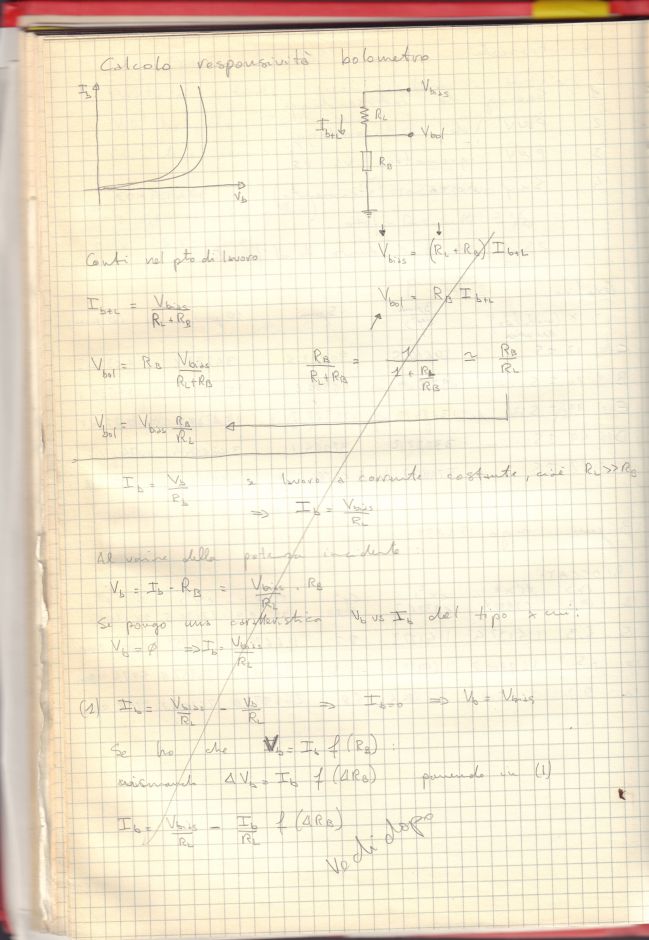 Calcolo responsività bolometro
I_b
V_b
V_bias
R_L
I_b+L
V_bol
R_B
Conti nel pto di lavoro
V_bias = (R_L + R_B) I_b+L
I_b+L = V_bias / (R_L + R_B)
V_bol = R_B I_b+L
V_bol = R_B V_bias / (R_L + R_B)
R_B / (R_L + R_B) = 1 / (1 + R_L / R_B) ≃ R_B / R_L
V_bol = V_bias R_B / R_L
I_b = V_b / R_b se lavoro a corrente costante, cioè R_L >> R_B
⇒ I_b = V_bias / R_L
Al variare della potenza incidente
V_b = I_b · R_B = V_bias / R_L · R_B
Se pongo una caratteristica V_b vs I_b del tipo x cui:
V_b = ∅ ⇒ I_b = V_bias / R_L
(1) I_b = V_bias / R_L - V_b / R_L ⇒ I_b=0 ⇒ V_b = V_bias
Se ho che V_b = I_b f (R_B) :
ΔV_b = I_b f (ΔR_B) ponendo in (1)
I_b = V_bias / R_L - I_b / R_L f (ΔR_B)
vedi dopo